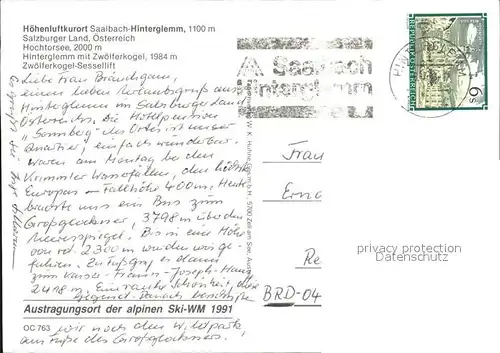 Höhenluftkurort Saalbach-Hinterglemm, 1100 m
Salzburger Land, Österreich
Hochtorsee, 2000 m
Hinterglemm mit Zwölferkogel, 1984 m
Zwölferkogel-Sessellift
Liebe Frau
einen lieben Urlaubsgruß aus
Hinterglemm im Salzburger Land
Österreichs. Die Hotelpension
"Sonnberg" des Ortes ist unser
Quartier, einfach wunderbar.
waren am Montag bei den
Krimmler Wasserfällen, den
Europas - Fallhöhe 400m. Heute
brachte uns ein Bus zum
Großglockner, 3798 m über dem
Meeresspiegel. Bis in eine Höhe
von rd. 2300 m wurden wir ge-
fahren. Zu Fuß ging es dann
zum Kaiser-Franz-Joseph-Haus
2418 m. Eine rauhe Schönheit, diese
Gegend. Danach
Austragungsort der alpinen Ski-WM 1991
OC 763
wir noch den Wildpark
am Fuße des Großglockners.
Saalbach
Hinterglemm
REPUBLIK ÖSTERREICH
6 S
Frau
Erna
Re
BRD-04
privacy protection
Datenschutz